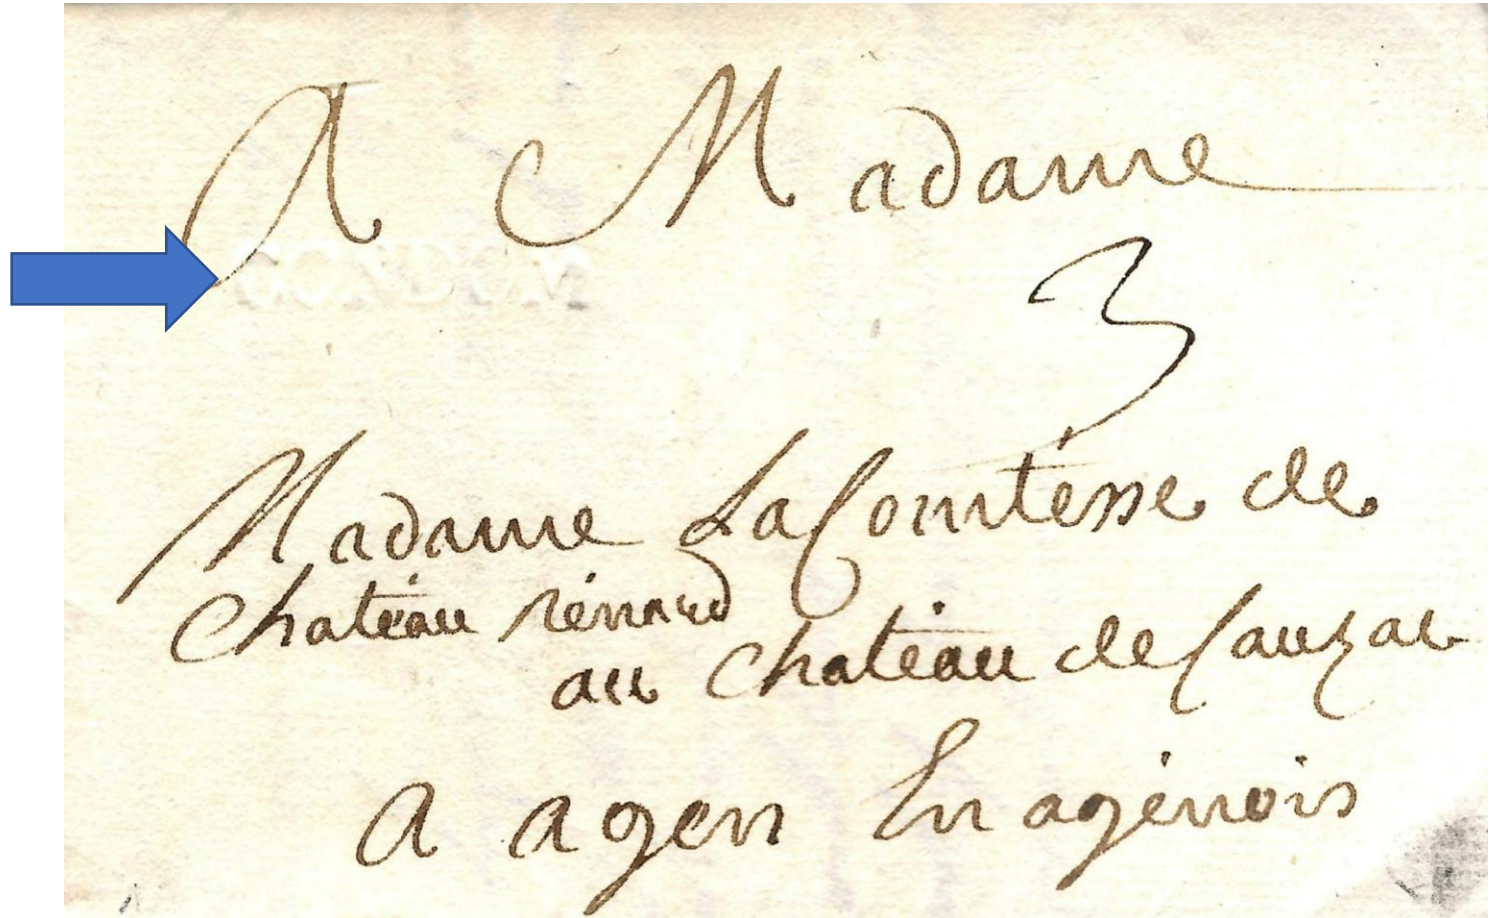 A Madame
3
Madame La Comtesse de
Chateau rénard
au Chateau de Cauzac
A agen En agénois